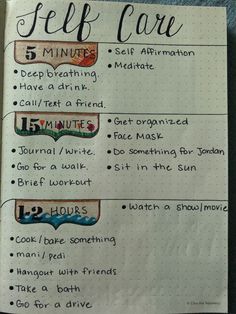 Self Care
5 MINUTES
• Self Affirmation
• Meditate
• Deep breathing.
• Have a drink.
• Call/Text a friend.
15 MINUTES
• Get organized
• Face Mask
• Journal/Write.
• Do something for Jordan
• Go for a walk.
• Sit in the sun
• Brief workout
1-2 HOURS
• Watch a show/movie
• Cook/bake something
• mani/pedi
• Hangout with friends
• Take a bath
• Go for a drive